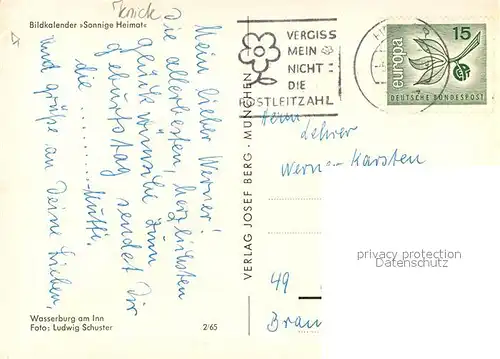 Bildkalender »Sonnige Heimat«
Knick
Mein lieber Werner!
Die allerbesten, herzlichsten
Glückwünsche zum
Geburtstag sendet Dir
die .......... Mutti.
und grüße an Deine Lieben,
Wasserburg am Inn
Foto: Ludwig Schuster
2/65
VERLAG JOSEF BERG · MÜNCHEN
VERGISS
MEIN
NICHT:
DIE
POSTLEITZAHL
europa
15
DEUTSCHE BUNDESPOST
Herrn
Lehrer
Werner Karsten
49
privacy protection
Datenschutz